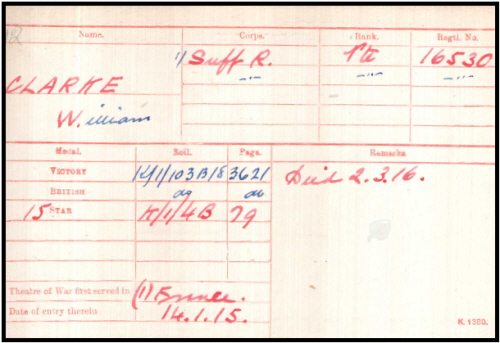 Name. Corps. Rank. Regtl. No.
1) Suff R. Pte 16530
CLARKE -"- -"- -"-
William
Medal. Roll. Page. Remarks.
VICTORY K/1/103B18 3621 Died 2.3.16.
BRITISH do do
15 STAR K/1/4B 79
Theatre of War first served in (1) France.
Date of entry therein 14.1.15.
K. 1380.